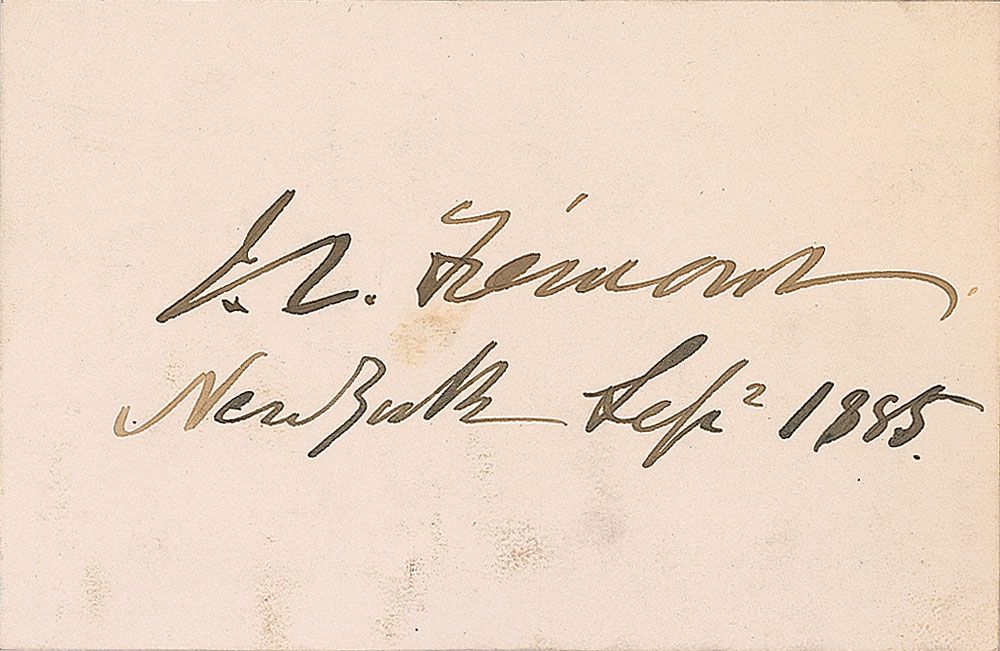 J. C. Frémont.
New York Sepr 1885.